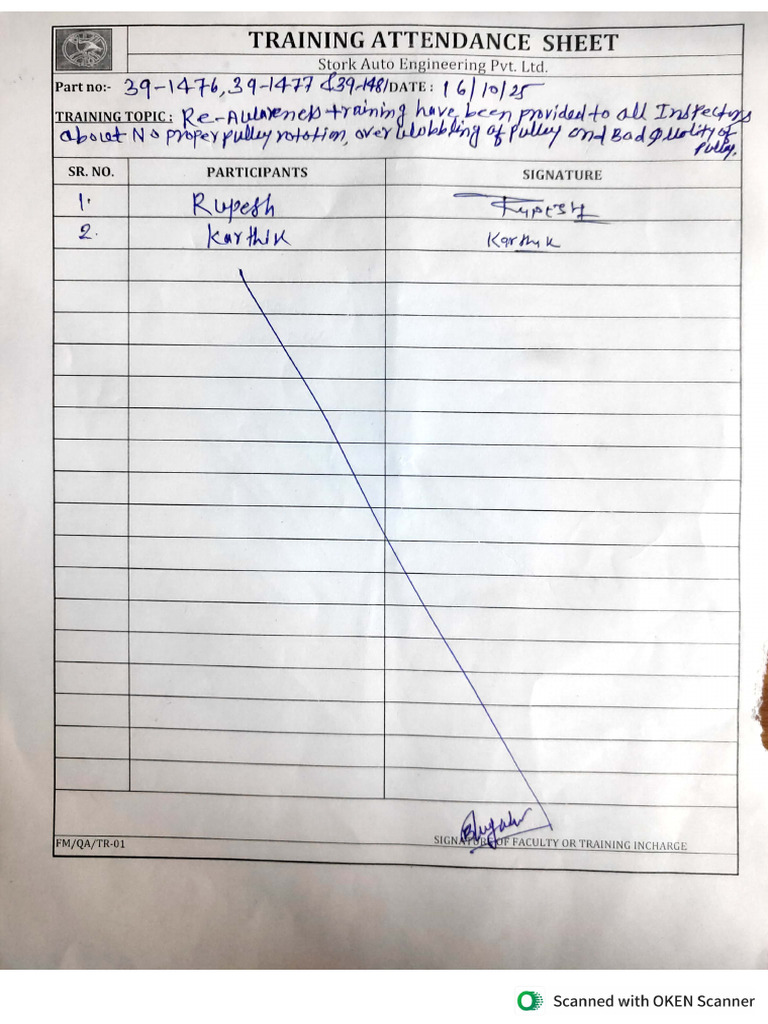 TRAINING ATTENDANCE SHEET
Stork Auto Engineering Pvt. Ltd.
Part no:- 39-1476, 39-1477 & 39-1481 DATE : 16/10/25
TRAINING TOPIC : Re-Awareness training have been provided to all Inspectors
about No proper pulley rotation, over wobbling of pulley and Bad Quality of
pulley.
SR. NO. PARTICIPANTS SIGNATURE
1. Rupesh Rupesh
2. Karthik Karthik
FM/QA/TR-01 SIGNATURE OF FACULTY OR TRAINING INCHARGE
Scanned with OKEN Scanner